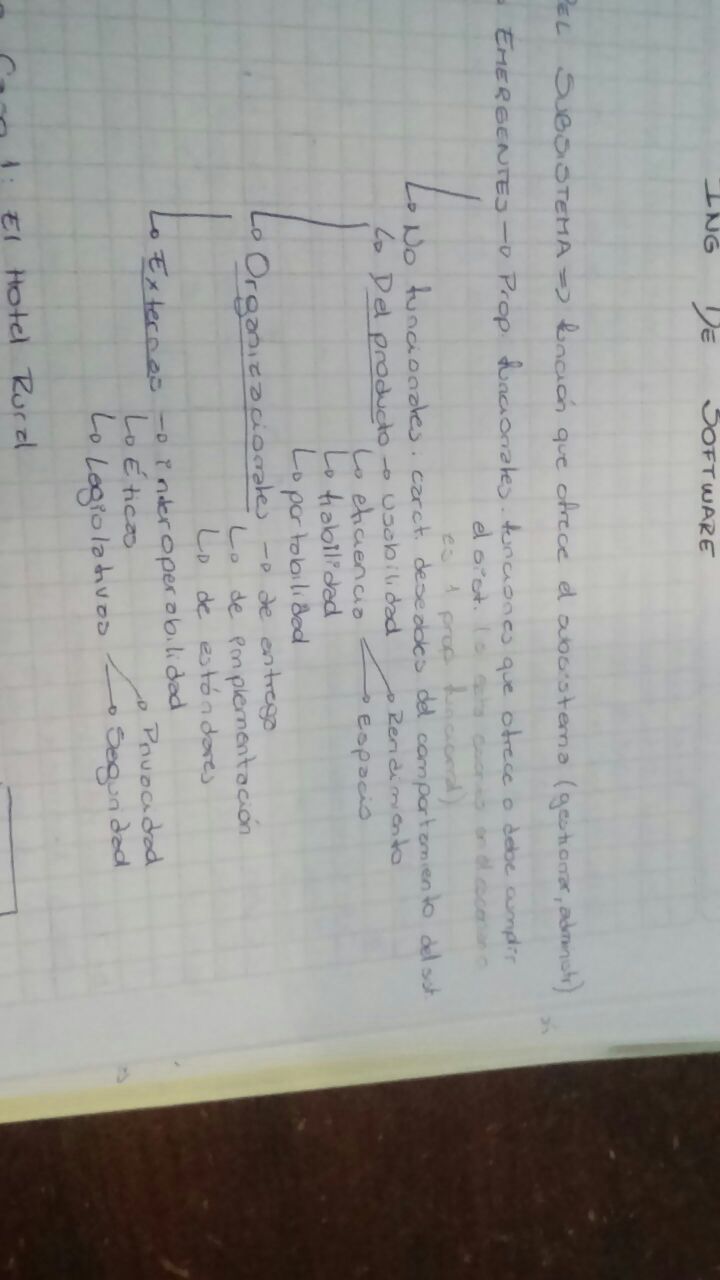 ING DE SOFTWARE
DEL SUBSISTEMA => función que ofrece el subsistema (gestionar, administr)
EMERGENTES → Prop. funcionales. funciones que ofrece o debe cumplir
el sist. (
es 1 prop funcional)
↳ No funcionales. caract. deseables del comportamiento del sist.
↳ Del producto → Usabilidad → Rendimiento
↳ eficiencia → Espacio
↳ fiabilidad
↳ portabilidad
↳ Organizacionales → de entrega
↳ de implementación
↳ de estándares
↳ Externos → interoperabilidad
↳ Éticos → Privacidad
↳ Legislativos → Seguridad
Caso 1: El Hotel Rural